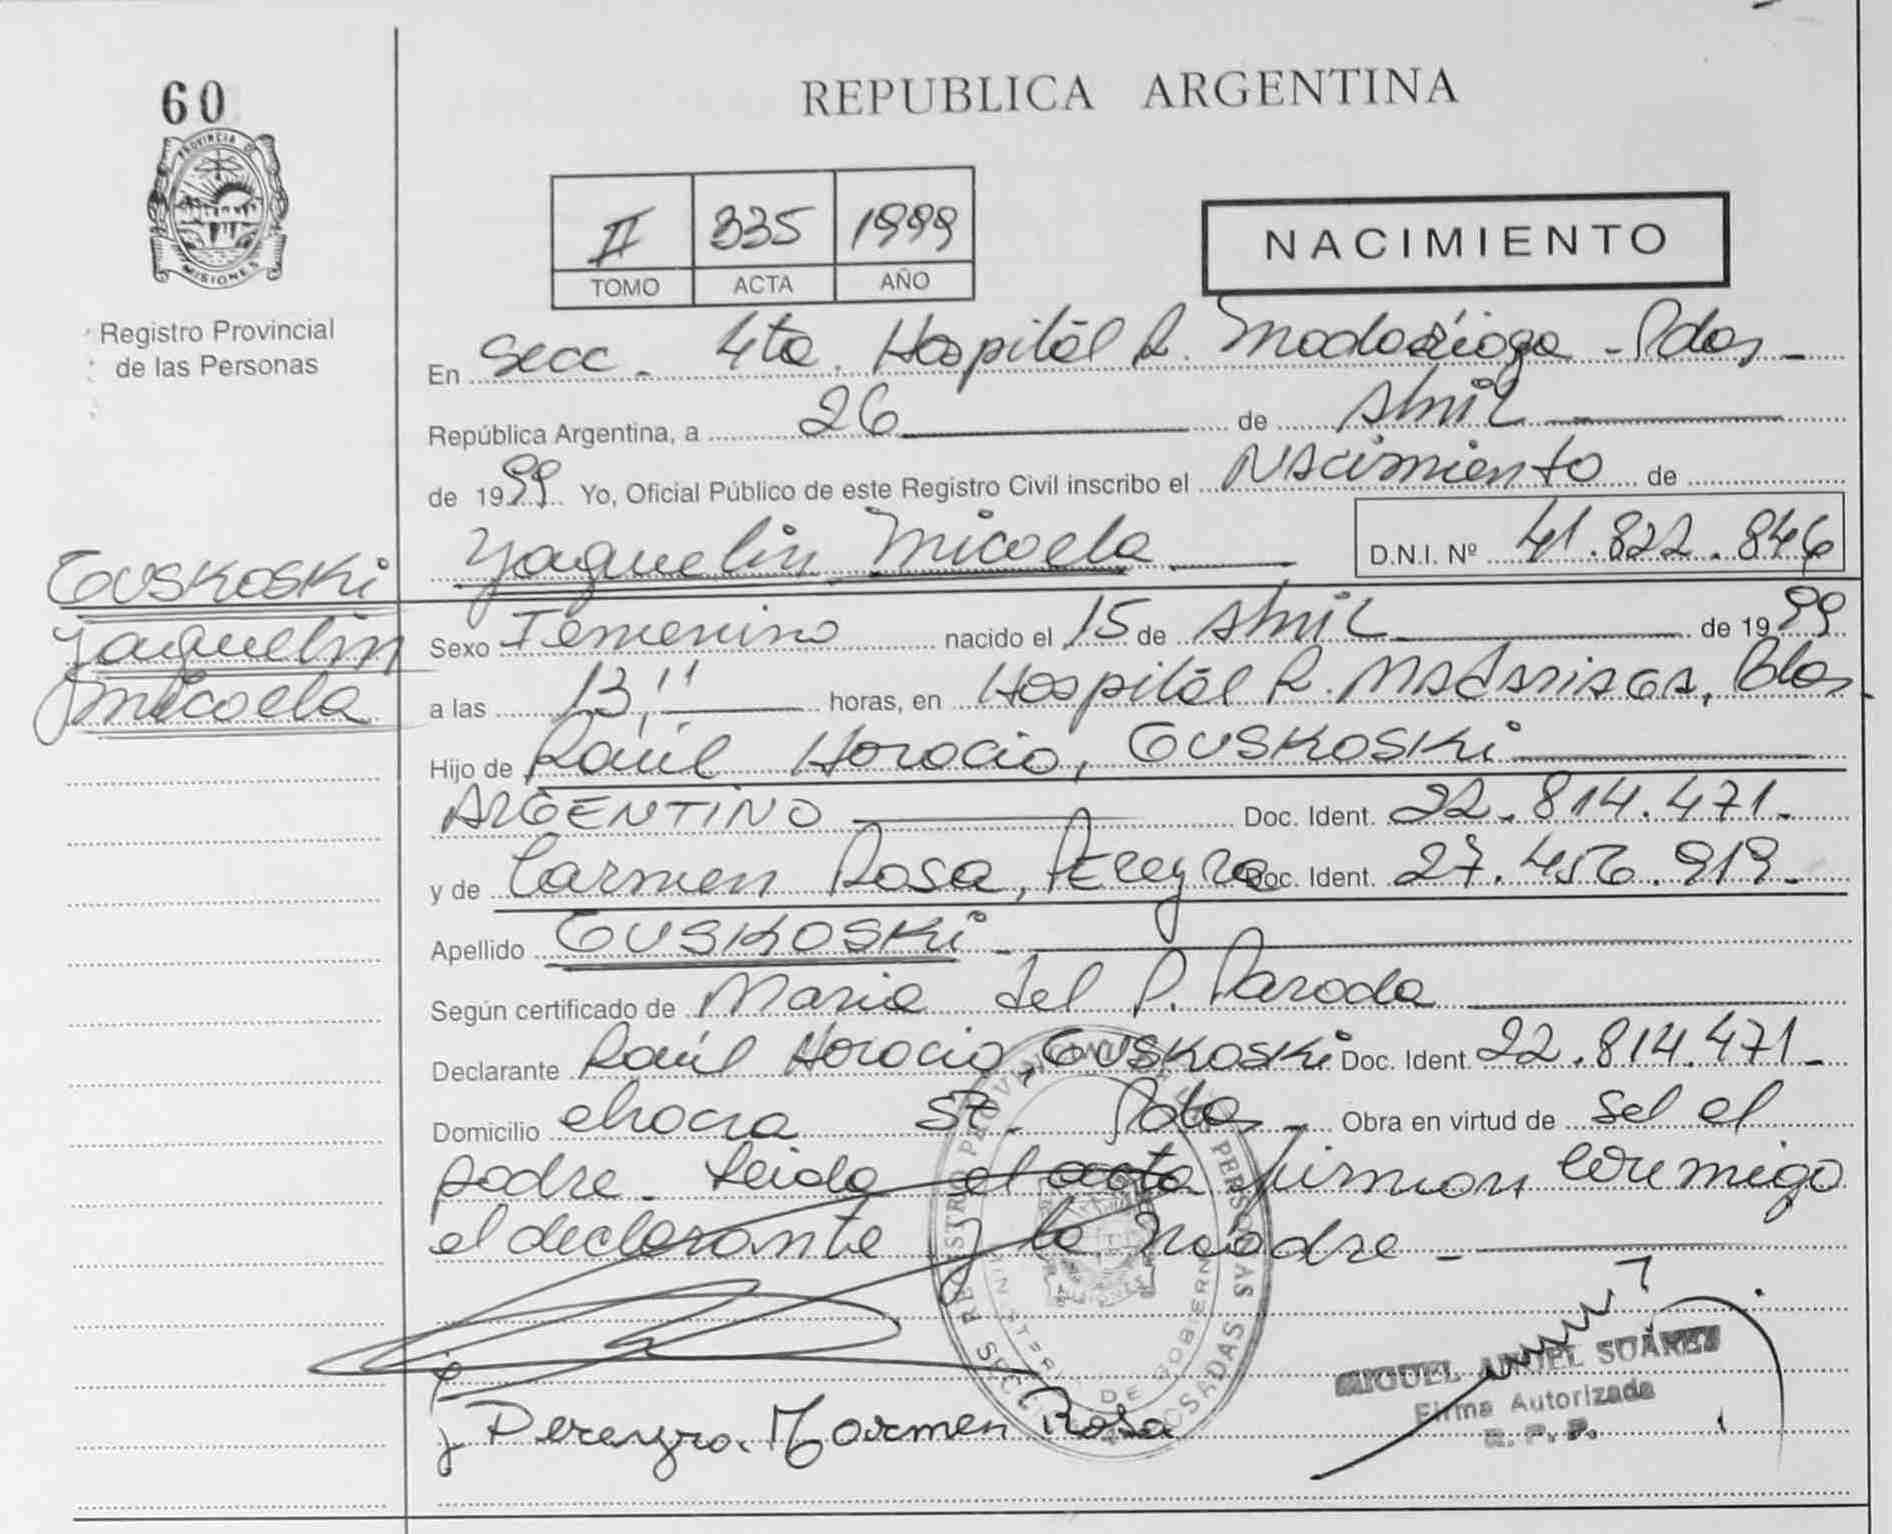 60
PROVINCIA DE
MISIONES
Registro Provincial
de las Personas
REPUBLICA ARGENTINA
II 335 1999
TOMO ACTA AÑO
NACIMIENTO
En Secc. 4ta. Hospital R. Madariaga - Pdas -
República Argentina, a 26 de Abril
de 1999 Yo, Oficial Público de este Registro Civil inscribo el Nacimiento de
Yaquelin Micaela D.N.I. Nº 41.822.846
GUSKOSKI
Yaquelin
Micaela
Sexo Femenino nacido el 15 de Abril de 1999
a las 13,'' horas, en Hospital R. Madariaga, Pdas.
Hijo de Raúl Horacio, GUSKOSKi
ARGENTINO Doc. Ident. 22.814.471.
y de Carmen Rosa, Pereyra Doc. Ident. 27.456.919.
Apellido GUSKOSKi -
Según certificado de Maria del P. Paroda
Declarante Raúl Horacio, GUSKOSKi Doc. Ident. 22.814.471 -
Domicilio chacra 57 - Pdas - Obra en virtud de sel el
padre. Leida el acta firman conmigo
el declarante y la madre -
REGISTRO PROVINCIAL DE LAS PERSONAS
MINISTERIO DE GOBIERNO
POSADAS
MIGUEL ANGEL SUÁREZ
Firma Autorizada
R. P. P.
Pereyra. Carmen Rosa